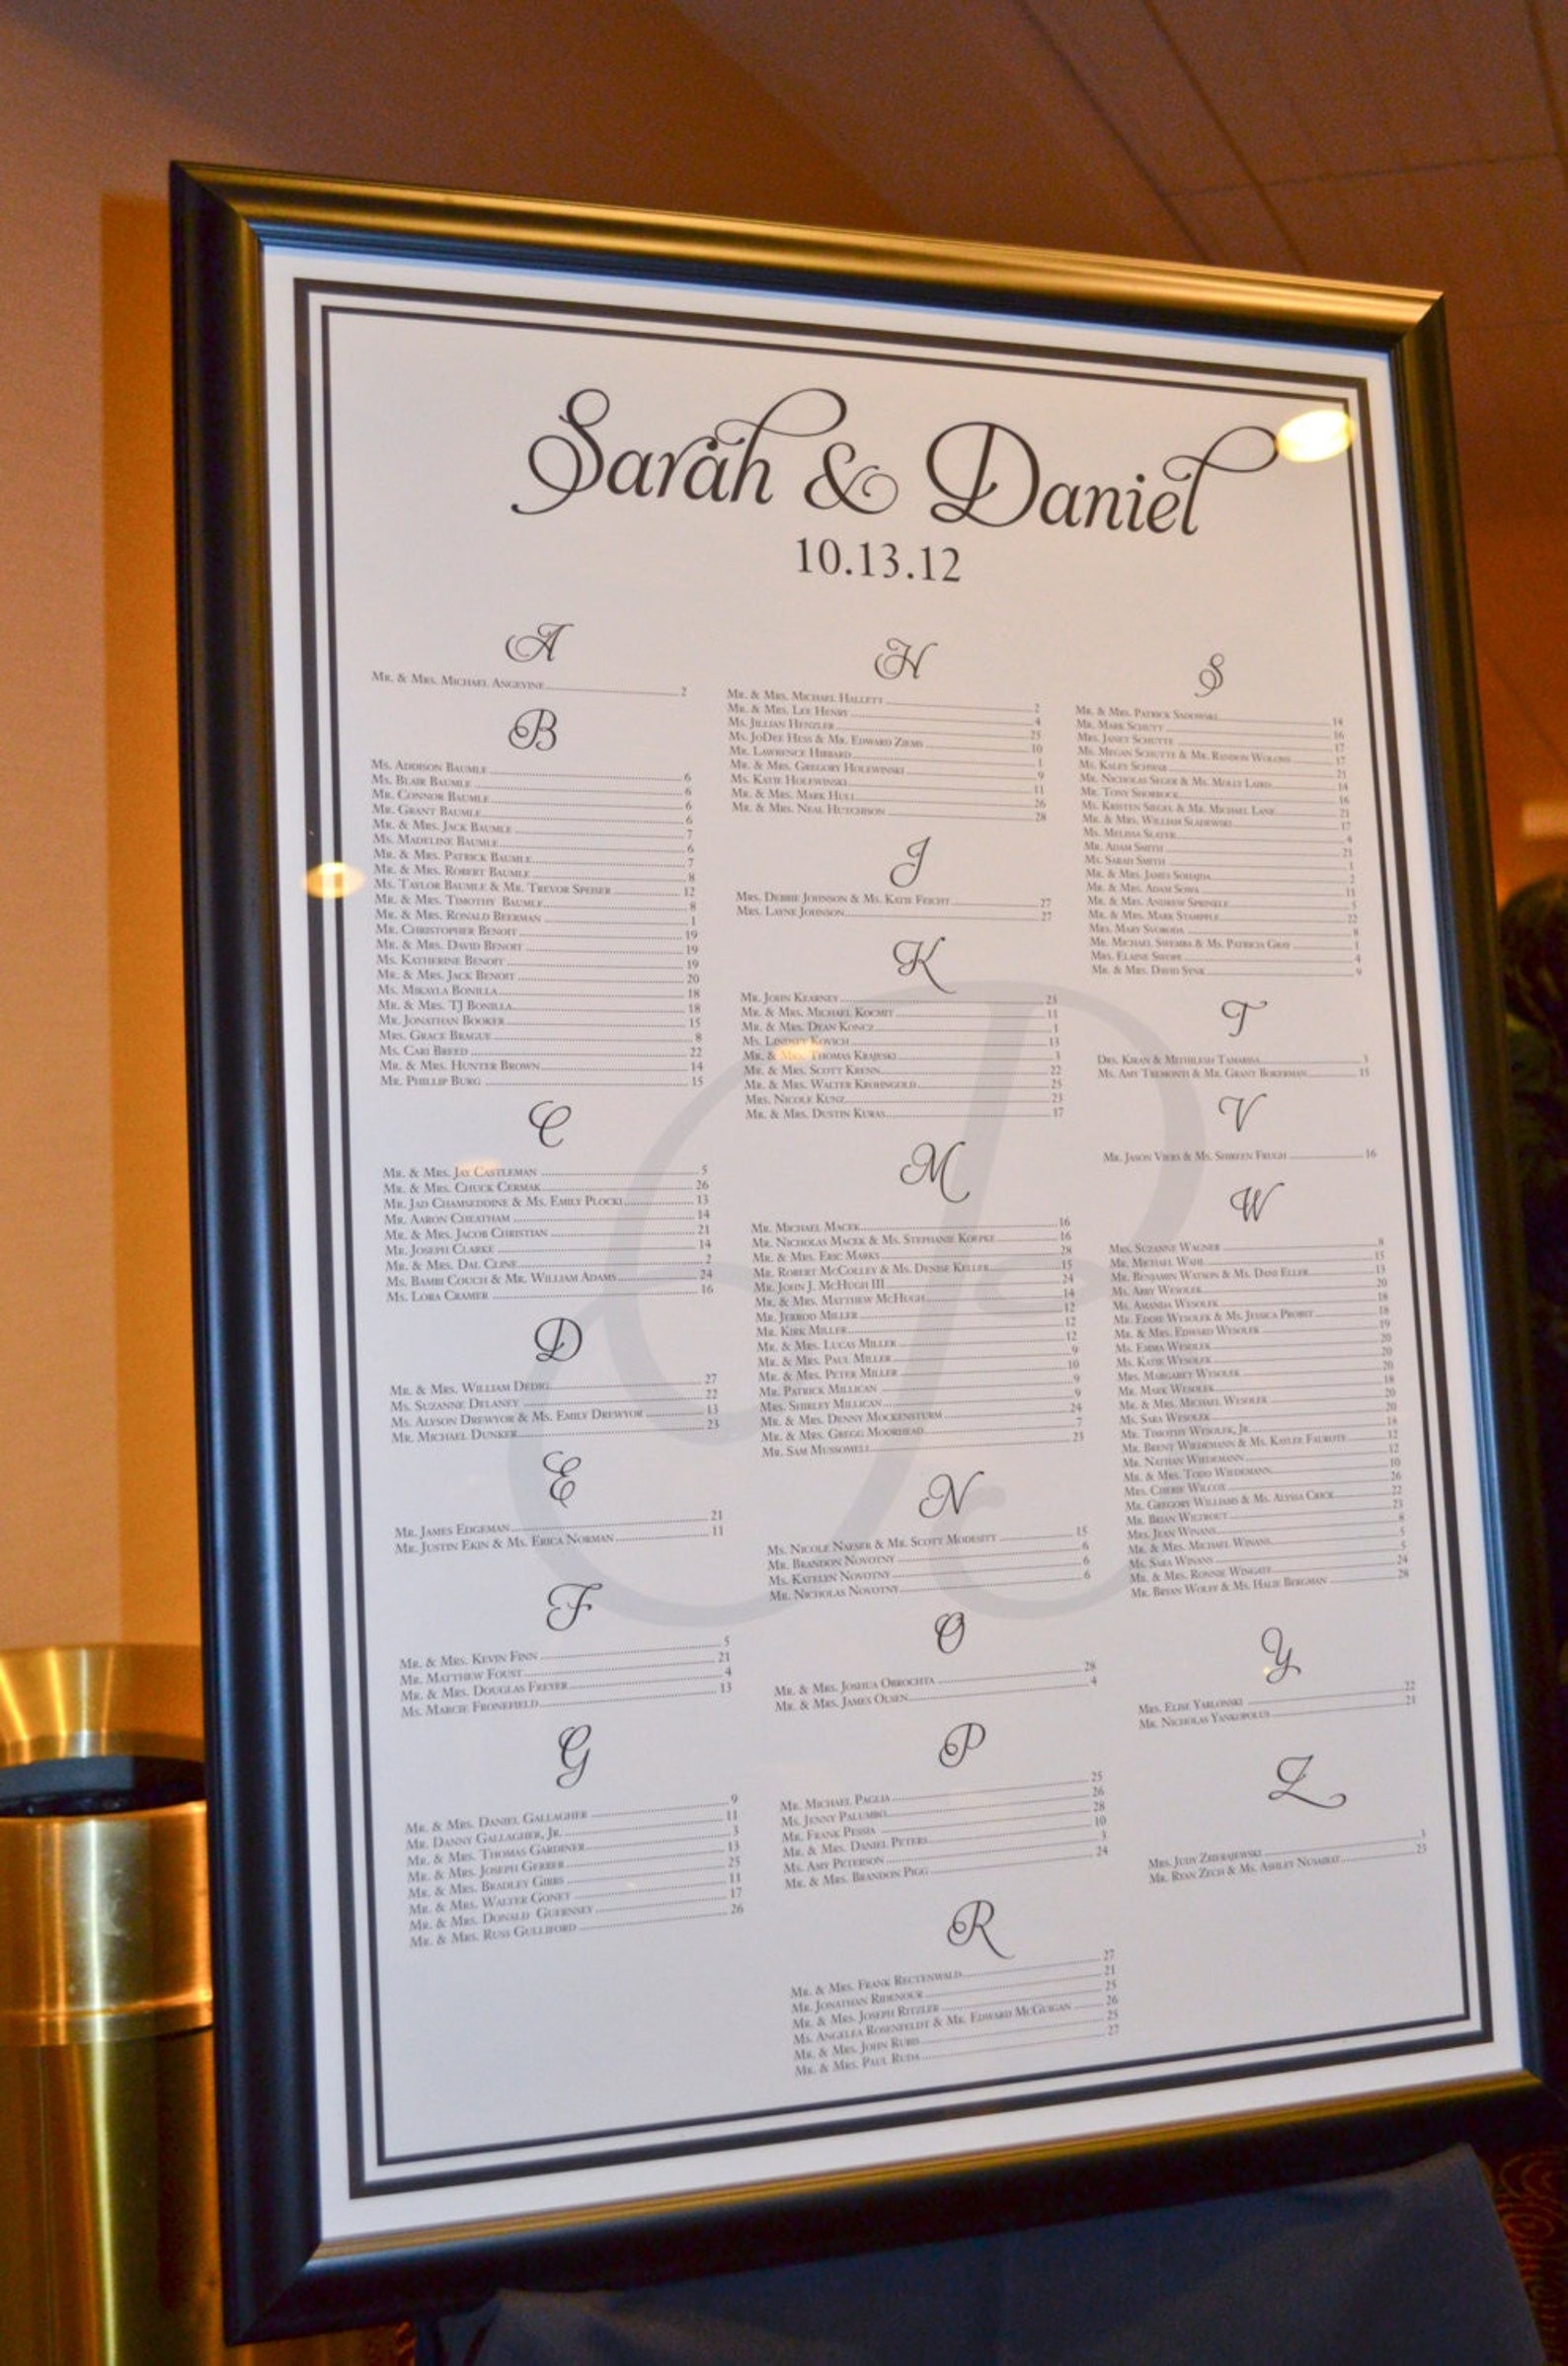 Sarah & Daniel
10.13.12
A
Mr. & Mrs. Michael Angevine 2
B
Ms. Addison Baumle 6
Ms. Blair Baumle 6
Mr. Connor Baumle 6
Mr. Grant Baumle 6
Mr. & Mrs. Jack Baumle 7
Ms. Madeline Baumle 6
Mr. & Mrs. Patrick Baumle 7
Mr. & Mrs. Robert Baumle 8
Ms. Taylor Baumle & Mr. Trevor Speiser 12
Mr. & Mrs. Timothy Baumle 8
Mr. & Mrs. Ronald Beerman 1
Mr. Christopher Benoit 19
Mr. & Mrs. David Benoit 19
Ms. Katherine Benoit 19
Mr. & Mrs. Jack Benoit 20
Ms. Mikayla Bonilla 18
Mr. & Mrs. TJ Bonilla 18
Mr. Jonathan Booker 15
Mrs. Grace Brague 8
Ms. Cari Breed 22
Mr. & Mrs. Hunter Brown 14
Mr. Phillip Burg 15
C
Mr. & Mrs. Jay Castleman 5
Mr. & Mrs. Chuck Cermak 26
Mr. Jad Chamseddine & Ms. Emily Plocki 13
Mr. Aaron Cheatham 14
Mr. & Mrs. Jacob Christian 21
Mr. Joseph Clarke 14
Mr. & Mrs. Dal Cline 2
Ms. Bambi Couch & Mr. William Adams 24
Ms. Lora Cramer 16
D
Mr. & Mrs. William Dedig 27
Ms. Suzanne Delaney 22
Ms. Alyson Drewyor & Ms. Emily Drewyor 13
Mr. Michael Dunker 23
E
Mr. James Edgeman 21
Mr. Justin Ekin & Ms. Erica Norman 11
F
Mr. & Mrs. Kevin Finn 5
Mr. Matthew Foust 21
Mr. & Mrs. Douglas Freyer 4
Ms. Marcie Fronefield 13
G
Mr. & Mrs. Daniel Gallagher 9
Mr. Danny Gallagher, Jr. 11
Mr. & Mrs. Thomas Gardiner 3
Mr. & Mrs. Joseph Gerber 13
Mr. & Mrs. Bradley Gibbs 25
Mr. & Mrs. Walter Gonet 11
Mr. & Mrs. Donald Guernsey 17
Mr. & Mrs. Russ Gulliford 26
H
Mr. & Mrs. Michael Hallett 2
Mr. & Mrs. Lee Henry 4
Ms. Jillian Henzler 25
Ms. JoDee Hess & Mr. Edward Ziems 10
Mr. Lawrence Hibbard 1
Mr. & Mrs. Gregory Holewinski 9
Ms. Katie Holewinski 11
Mr. & Mrs. Mark Hull 26
Mr. & Mrs. Neal Hutchison 28
J
Mrs. Debbie Johnson & Ms. Katie Feicht 27
Mrs. Layne Johnson 27
K
Mr. John Kearney 23
Mr. & Mrs. Michael Kocmit 11
Mr. & Mrs. Dean Koncz 1
Ms. Lindsey Kovich 13
Mr. & Mrs. Thomas Krajeski 3
Mr. & Mrs. Scott Krenn 22
Mr. & Mrs. Walter Krohngold 25
Mrs. Nicole Kunz 23
Mr. & Mrs. Dustin Kuras 17
M
Mr. Michael Macek 16
Mr. Nicholas Macek & Ms. Stephanie Koepke 16
Mr. & Mrs. Eric Marks 28
Mr. Robert McColley & Ms. Denise Keller 15
Mr. John J. McHugh III 24
Mr. & Mrs. Matthew McHugh 14
Mr. Jerrod Miller 12
Mr. Kirk Miller 12
Mr. & Mrs. Lucas Miller 12
Mr. & Mrs. Paul Miller 9
Mr. & Mrs. Peter Miller 10
Mr. Patrick Millican 9
Mrs. Shirley Millican 9
Mr. & Mrs. Denny Mockensturm 24
Mr. & Mrs. Gregg Moorhead 7
Mr. Sam Mussomeli 23
N
Ms. Nicole Naeser & Mr. Scott Modesitt 15
Mr. Brandon Novotny 6
Ms. Katelyn Novotny 6
Mr. Nicholas Novotny 6
O
Mr. & Mrs. Joshua Obrochta 28
Mr. & Mrs. James Olsen 4
P
Mr. Michael Paglia 25
Ms. Jenny Palumbo 26
Mr. Frank Pessia 28
Mr. & Mrs. Daniel Peters 10
Ms. Amy Peterson 3
Mr. & Mrs. Brandon Pigg 24
R
Mr. & Mrs. Frank Rectenwald 27
Mr. Jonathan Ridenour 21
Mr. & Mrs. Joseph Ritzler 25
Ms. Angelea Rosenfeldt & Mr. Edward McGuigan 26
Mr. & Mrs. John Rubis 25
Mr. & Mrs. Paul Ruda 27
S
Mr. & Mrs. Patrick Sadowski 14
Mr. Mark Schutt 16
Mrs. Janet Schutte 17
Ms. Megan Schutte & Mr. Randon 17
Ms. Kaley Schwab 21
Mr. Nicholas Segor & Ms. Molly Laird 14
Mr. Tony Shorrock 16
Ms. Kristen Siegel & Mr. Michael Lane 21
Mr. & Mrs. William Sladewski 17
Ms. Melissa Slater 4
Mr. Adam Smith 21
Ms. Sarah Smith 1
Mr. & Mrs. James 2
Mr. & Mrs. Adam Sowa 11
Mr. & Mrs. Andrew Sprinkle 5
Mr. & Mrs. Mark 22
Mrs. Mary Svoboda 8
Mr. Michael Swemba & Ms. Patricia Gray 1
Mrs. Elaine Swope 4
Mr. & Mrs. David Synk 9
T
Drs. Kiran & Mithilesh 3
Ms. Amy Tremonti & Mr. Grant Bokerman 15
V
Mr. Jason Viers & Ms. Shireen 16
W
Mrs. Suzanne Wagner 8
Mr. Michael Wahl 15
Mr. Benjamin Watson & Ms. Dani Eller 13
Ms. Abby Wesolek 20
Ms. Amanda Wesolek 18
Mr. Eddie Wesolek & Ms. Jessica 18
Mr. & Mrs. Edward Wesolek 19
Ms. Emma Wesolek 20
Ms. Katie Wesolek 20
Mrs. Margaret Wesolek 20
Mr. Mark Wesolek 18
Mr. & Mrs. Michael Wesolek 20
Ms. Sara Wesolek 20
Mr. Timothy Wesolek, Jr. 18
Mr. Brent Wiedemann & Ms. Kaylee Faurote 12
Mr. Nathan Wiedemann 12
Mr. & Mrs. Todd Wiedemann 10
Mrs. Cherie Wilcox 26
Mr. Gregory Williams & Ms. Alyssa Crick 22
Mr. Brian Wiltrout 23
Mrs. Jean Winans 8
Mr. & Mrs. Michael Winans 5
Ms. Sara Winans 5
Mr. & Mrs. Ronnie Wingate 24
Mr. Bryan Wolff & Ms. Halie Bergman 28
Y
Mrs. Elise Yablonski 22
Mr. Nicholas Yankopolus 21
Z
Mrs. Judy 3
Mr. Ryan Zech & Ms. Ashley 23